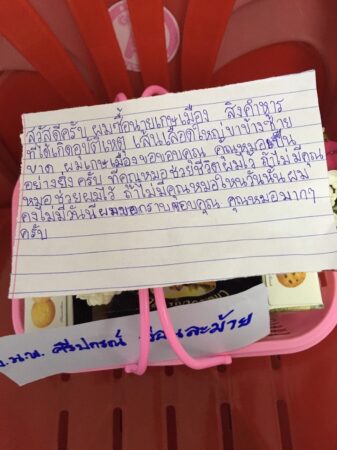 สวัสดีครับ ผมชื่อนายเกษเมือง สิงคำหาร
ที่ได้เกิดอุบัติเหตุ เส้นเลือดใหญ่ขาข้างซ้าย
ขาด ผมเกษเมืองขอขอบคุณ คุณหมอเป็น
อย่างยิ่งครับ ที่คุณหมอช่วยชีวิตผมไว้ ถ้าไม่มีคุณ
หมอช่วยผมไว้ ถ้าไม่มีคุณหมอในวันนั้นผม
คงไม่มีวันนี้ผมขอกราบขอบคุณ คุณหมอมากๆ
ครับ
ศิริปกรณ์